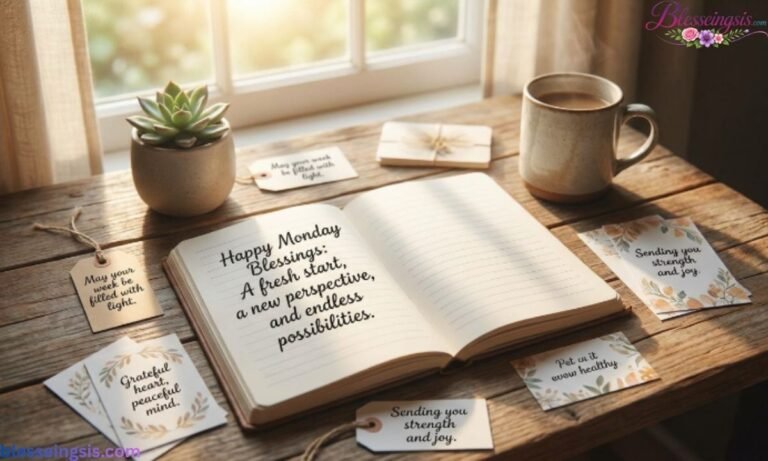 Blesseingsis.com
May your
week be filled
with light.
Happy Monday
Blessings:
A fresh start,
a new perspective,
and endless
possibilities.
Sending you
strength
and joy.
May your
week be
filled with
light.
Grateful
heart,
peaceful
mind.
healthy
Sending you
strength
and joy.
blesseingsis.com